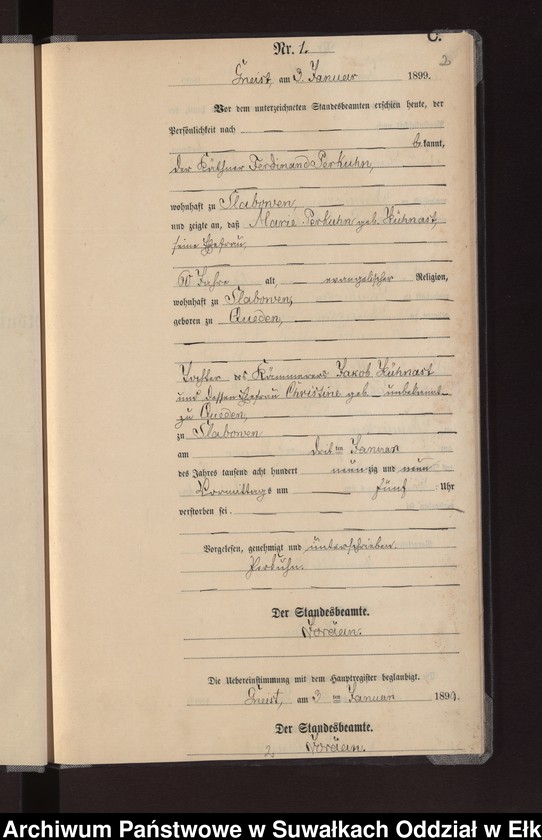 C.
2
Nr. 1.
Gneist, am 3. Januar 1899.
Vor dem unterzeichneten Standesbeamten erschien heute, der
Persönlichkeit nach
bekannt,
der Käthner Ferdinand Perkuhn,
wohnhaft zu Slabowen,
und zeigte an, daß Marie Perkuhn geb. Kühnast,
seine Ehefrau,
60 Jahre alt, evangelischer Religion,
wohnhaft zu Slabowen,
geboren zu Queden,
Tochter des Kämmerers Jakob Kühnast
und dessen Ehefrau Christine geb. unbekannt
zu Queden,
zu Slabowen
am dritten Januar
des Jahres tausend acht hundert neunzig und neun
Vormittags um fünf Uhr
verstorben sei.
Vorgelesen, genehmigt und unterschrieben.
Perkuhn.
Der Standesbeamte.
Die Uebereinstimmung mit dem Hauptregister beglaubigt.
Gneist, am 3 ten Januar 1899.
Der Standesbeamte.
2
Archiwum Państwowe w Suwałkach Oddział w Ełk